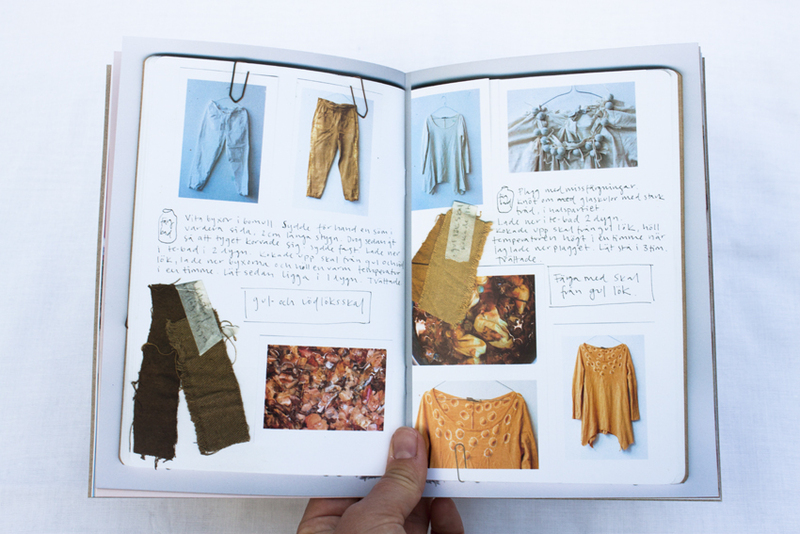 Vita byxor i bomull Sydde för hand en som i
vardera sida, 2 cm långa stygn. Drog sedan åt
så att tyget korvade sig, sydde fast. Lade ner
i te-bad 2 dygn. Kokade upp skal från gul och röd
lök, lade ner byxorna och höll en varm temperatur
i en timme Lät sedan ligga i 1 dygn. Tvättade
gul- och rödlöksskal
Plagg med missfägningar
knöt om med glaskulor med stark
tråd, i halspartiet
Lade ner i te-bad 2 dygn.
Kokade upp skal från gul lök, höll
temperaturen högt i en timme när
jag lade ner plagget Lät stå i 3 tim.
Tvättade
Färga med skal
från gul lök